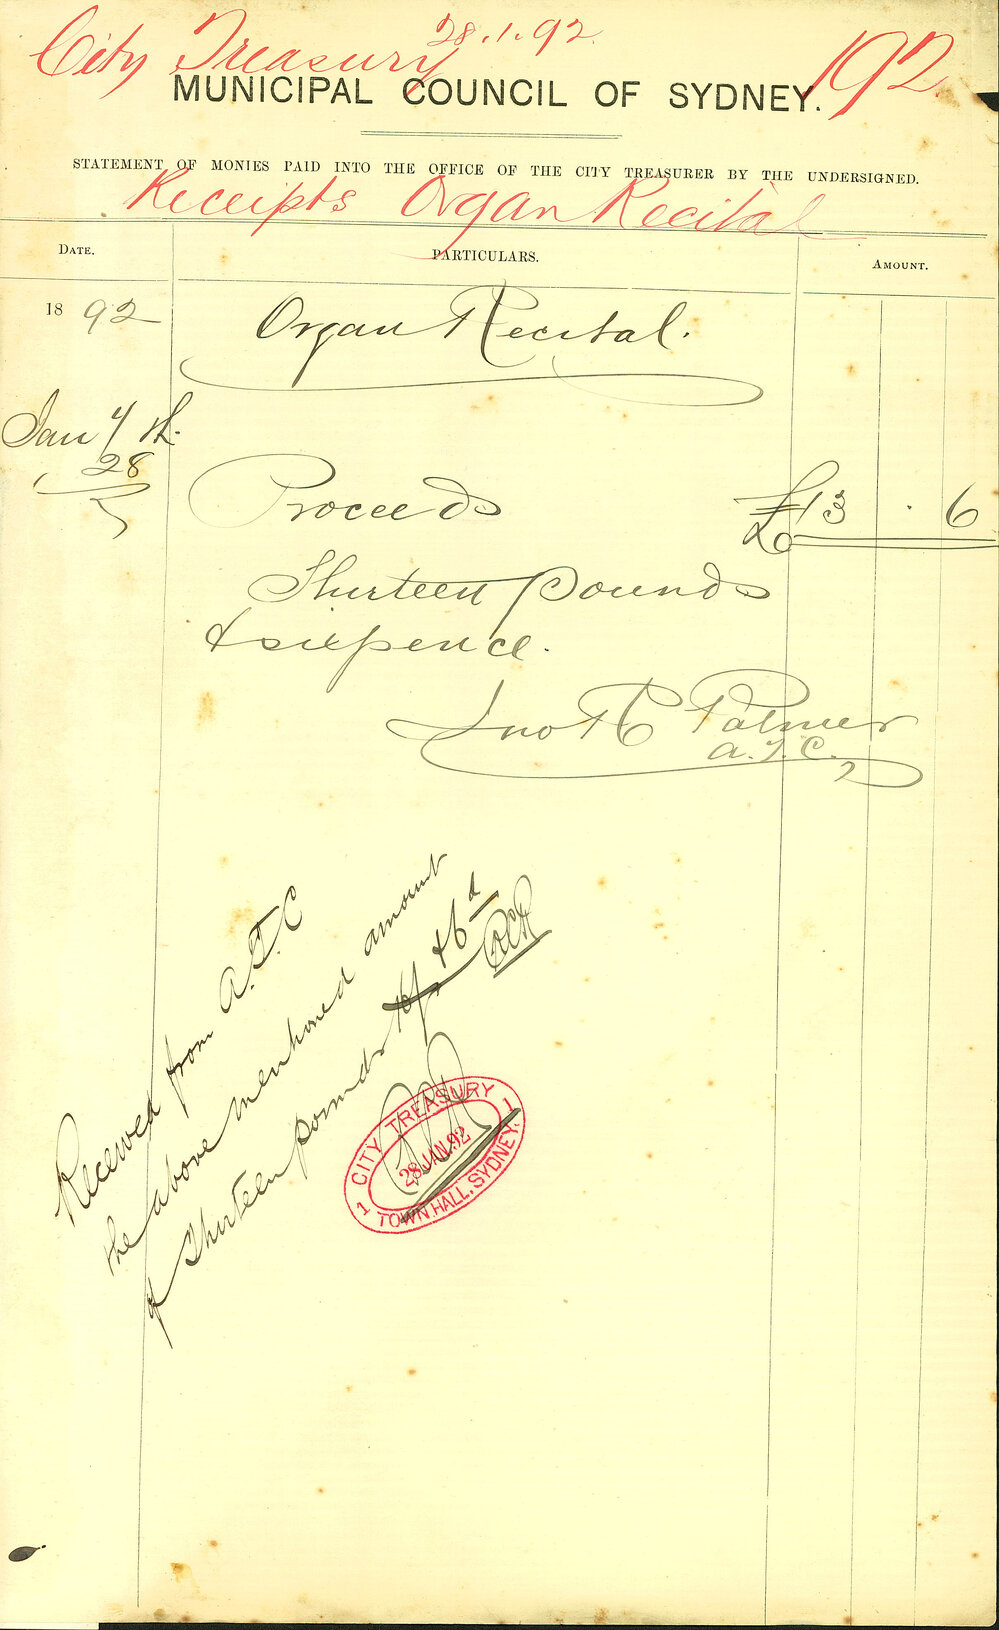 City Treasury 28.1.92. 192.
MUNICIPAL COUNCIL OF SYDNEY.
STATEMENT OF MONIES PAID INTO THE OFFICE OF THE CITY TREASURER BY THE UNDERSIGNED.
Receipts Organ Recital
DATE. PARTICULARS. AMOUNT.
1892 Organ Recital.
Jany
28
Proceeds £13 . 6
Thirteen pounds
& sixpence.
Jno R Palmer
A.T.C.
Received from A.T.C
the above mentioned amount
of Thirteen pounds & 6d
CITY TREASURY
28 JAN. 92
1 TOWN HALL, SYDNEY. 1